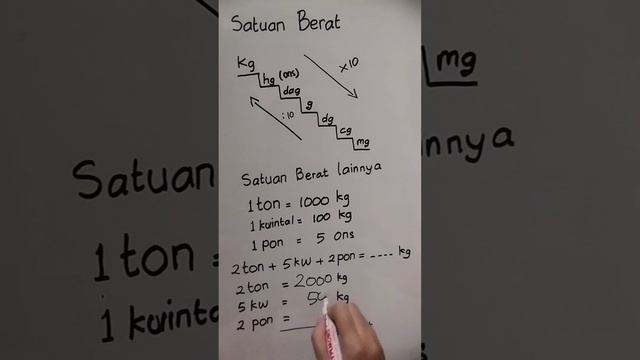 Satuan Berat
Kg
hg (ons)
dag
g
dg
cg
mg
x10
:10
Satuan Berat lainnya
1 ton = 1000 kg
1 kwintal = 100 kg
1 pon = 5 ons
2 ton + 5 kw + 2 pon = ---- kg
2 ton = 2000 kg
5 kw = 50 kg
2 pon =